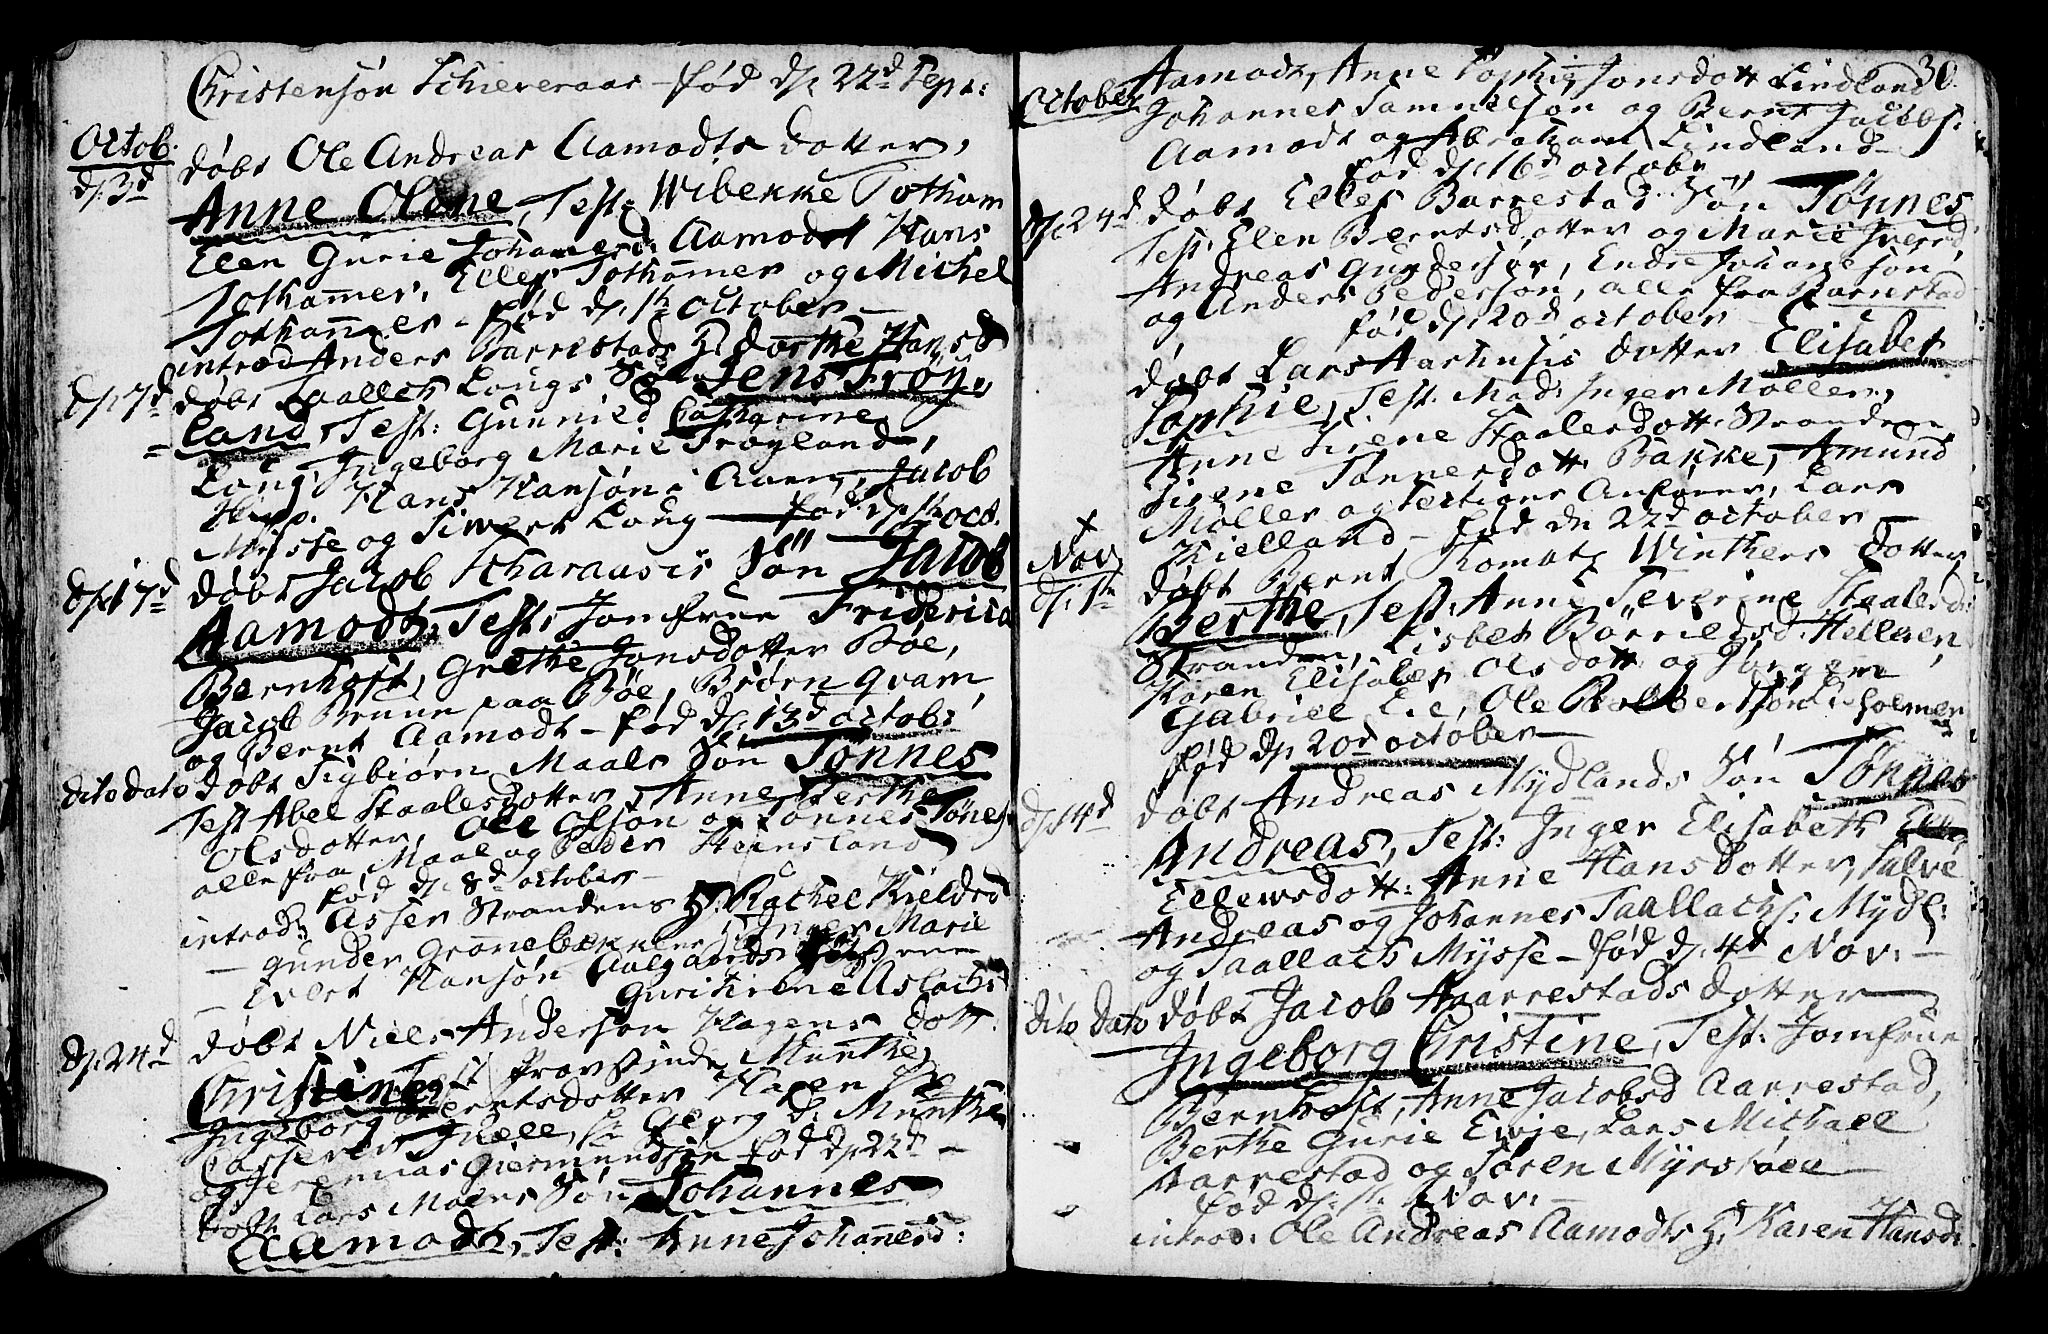 Christensøn Schieveraas - fød d. 22d Sept:
Octob.
d. 3d døbt Ole Andreas Aamodts Dotter,
Anne Olene, Test: Wibekke Tothamer
Elen Gurie Johannesd: Aamodt Hans
Tothamer, Ellef Tothamer og Michel
Tothammer - fød d. 1ste October -
introd Anders Barrestads H. Dorthe Hansd
d. 7d døbt Taallef Lougs Søn Jens Frøy-
land, Test: Gunnild Catharine
Loug, Ingeborg Marie Frøyland,
Hans Hansøn i Aaen, Jacob
Mysse og Siwert Loug - fød d. 1ste Oct.
d. 17d døbt Jacob Scharaasis Søn Jacob
Aamodt, Test: Jomfrue Friderica
Bernhoft, Grethe Jonsdotter Bøe,
Jacob Bruun paa Bøe, Biørn Qvam
og Bernt Aamodt - fød d. 13d Octob:
dito dato døbt Sigbiørn Maals Søn Tønnes
Test Abel Staalesdotter, Anne Berthe
Olsdotter, Ole Olsøn og Tønnes Tønes:
alle fra Maal og Peder Steinsland
fød d. 8d October -
introd: Asser Strandens H: Rachel Kieldsd
- Gunder Grønnebækkens H: Inger Marie
- Evert Hansøn Aalgaards
Guri Sirene Aslachs
d. 24d døbt Niels Andersøn Hagens Dott:
Christine, Test Provstinde Munthe,
Ingeborg Berntsdotter Hagen
og Jeremias Giermundsøn fød d. 22d -
døbt Lars Moens Søn Johannes
Aamodt, Test: Anne Johannesd:
30.
October Aamodt, Anne Sophie Jonsdott Lindland
Johannes Samuelsøn og Bernt Jacobs:
Aamodt og Abraham Lindland -
fød d. 16d October
d. 24d døbt Ellef Barrestad Søn Tønnes
Test: Elen Berntsdotter og Marie Iversd,
Andreas Gundersøn, Endre Johanesøn
og Anders Pedersøn, alle fra Barrestad
fød d. 20d October -
døbt Lars Aarhusis Dotter Elisabet
Sophie, Test. Mad: Inger Møller,
Anne Sirene Staalesdott: Stranden
Sirene Tønnesdott: Bakke, Amund
Møller og Lars
Kielland - fød d. 22d October -
Nov
d. 1ste døbt Bernt Winthers Dotter
Berthe, Test: Anne Severine Staalesd:
Stranden, Lisbet Børrildsd: Helleren
Karen Elisabet Olsdott: og Jørgen
Gabriel Eie, Ole Rolbertsøn i Holmen
fød d. 20d October -
d. 14d døbt Andreas Mydlands Søn Tønnes
Andreas, Test: Inger Elisabeth
Ellewsdott: Anne Hansdotter, Salve
Andreas og Johannes Taallachs: Mydl:
og Taallach Mysse - fød d. 4d Nov: -
dito dato døbt Jacob Aarrestads Dotter
Ingeborg Christine, Test: Jomfrue
Bernhoft, Anne Jacobsd Aarrestad,
Berthe Gurie Ewje, Lars Michael
Aarrestad og Søren Myrstøel -
fød d. Nov: -
introd: Ole Andreas Aamodts H: Karen Hansd: